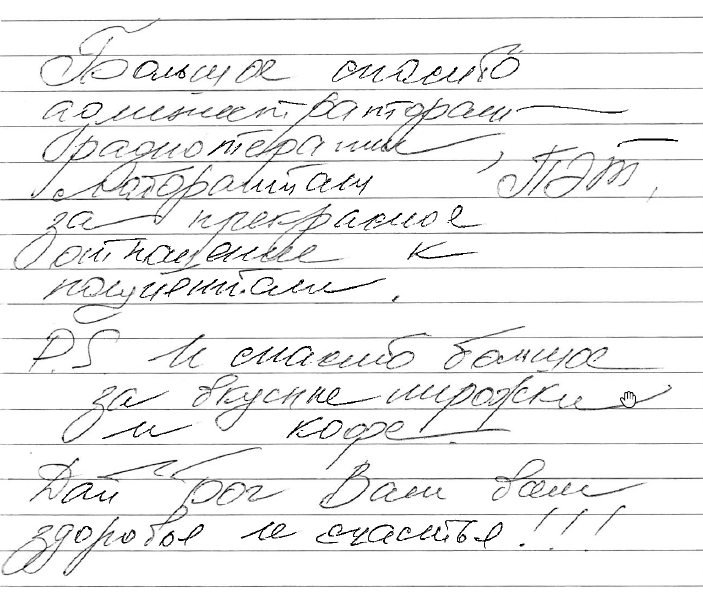 Большое спасибо
администраторам
радиотерапии,
лаборантам ПЭТ,
за прекрасное
отношение к
пациентам.
P.S. И спасибо большое
за вкусные пирожки
и кофе.
Дай бог Вам всем
здоровья и счастья!!!